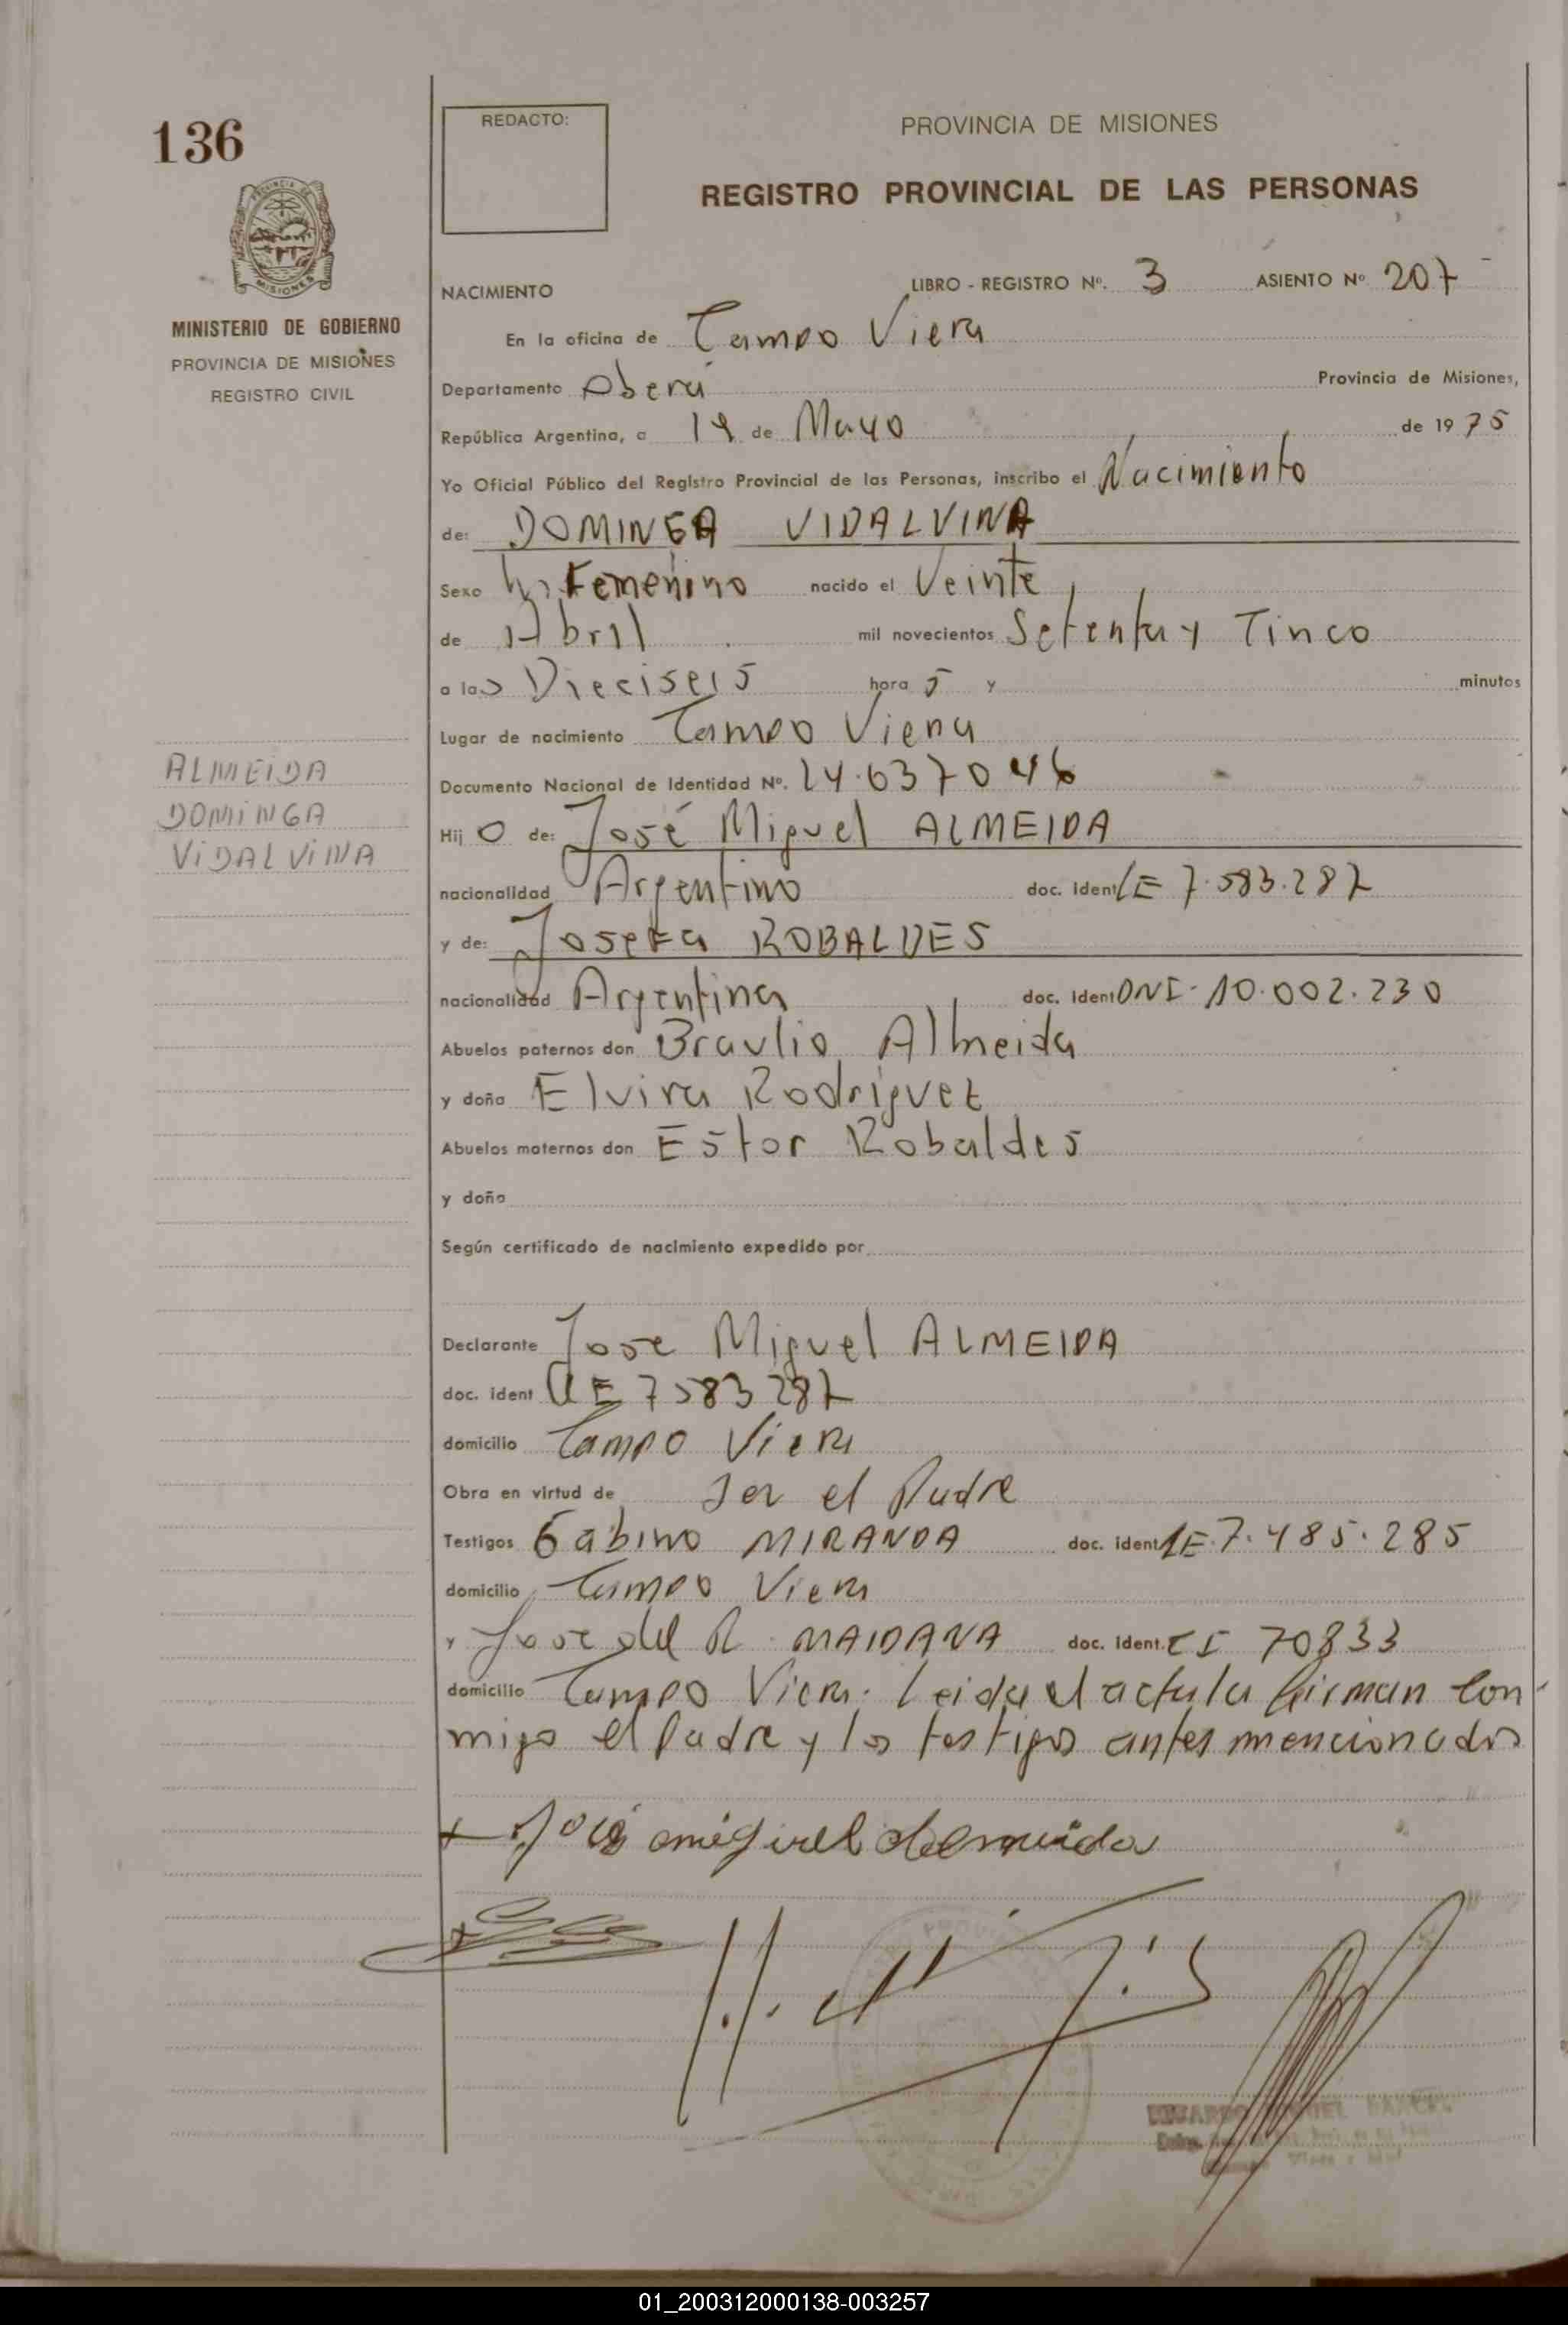 136
REDACTO:
PROVINCIA DE MISIONES
REGISTRO PROVINCIAL DE LAS PERSONAS
MINISTERIO DE GOBIERNO
PROVINCIA DE MISIONES
REGISTRO CIVIL
NACIMIENTO LIBRO - REGISTRO Nº. 3 ASIENTO Nº 207
En la oficina de Campo Viera
Departamento Oberá Provincia de Misiones,
República Argentina, a de Mayo de 1975
Yo Oficial Público del Registro Provincial de las Personas, inscribo el Nacimiento
de: DOMINGA VIDALVINA
Sexo Femenino nacido el Veinte
de Abril mil novecientos Setenta y Cinco
a las Dieciseis hora s y minutos
Lugar de nacimiento Campo Viera
Documento Nacional de Identidad Nº. 24.637046
ALMEIDA
DOMINGA
VIDALVINA
Hij o de: José Miguel ALMEIDA
nacionalidad Argentino doc. ident LE 7.583.287
y de: Josefa ROBALDES
nacionalidad Argentina doc. ident DNI- 10.002.230
Abuelos paternos don Braulio Almeida
y doña Elvira Rodriguez
Abuelos maternos don Estor Robaldes
y doña
Según certificado de nacimiento expedido por
Declarante Jose Miguel ALMEIDA
doc. ident LE 7583287
domicilio Campo Viera
Obra en virtud de Ser el Padre
Testigos Gabino MIRANDA doc. ident LE.7.485.285
domicilio Campo Viera
y Jose del R. MAIDANA doc. ident. CI 70833
domicilio Campo Viera. Leida el acta la firman con-
migo el Padre y los testigos antes mencionados
José miguel almeida
01_200312000138-003257